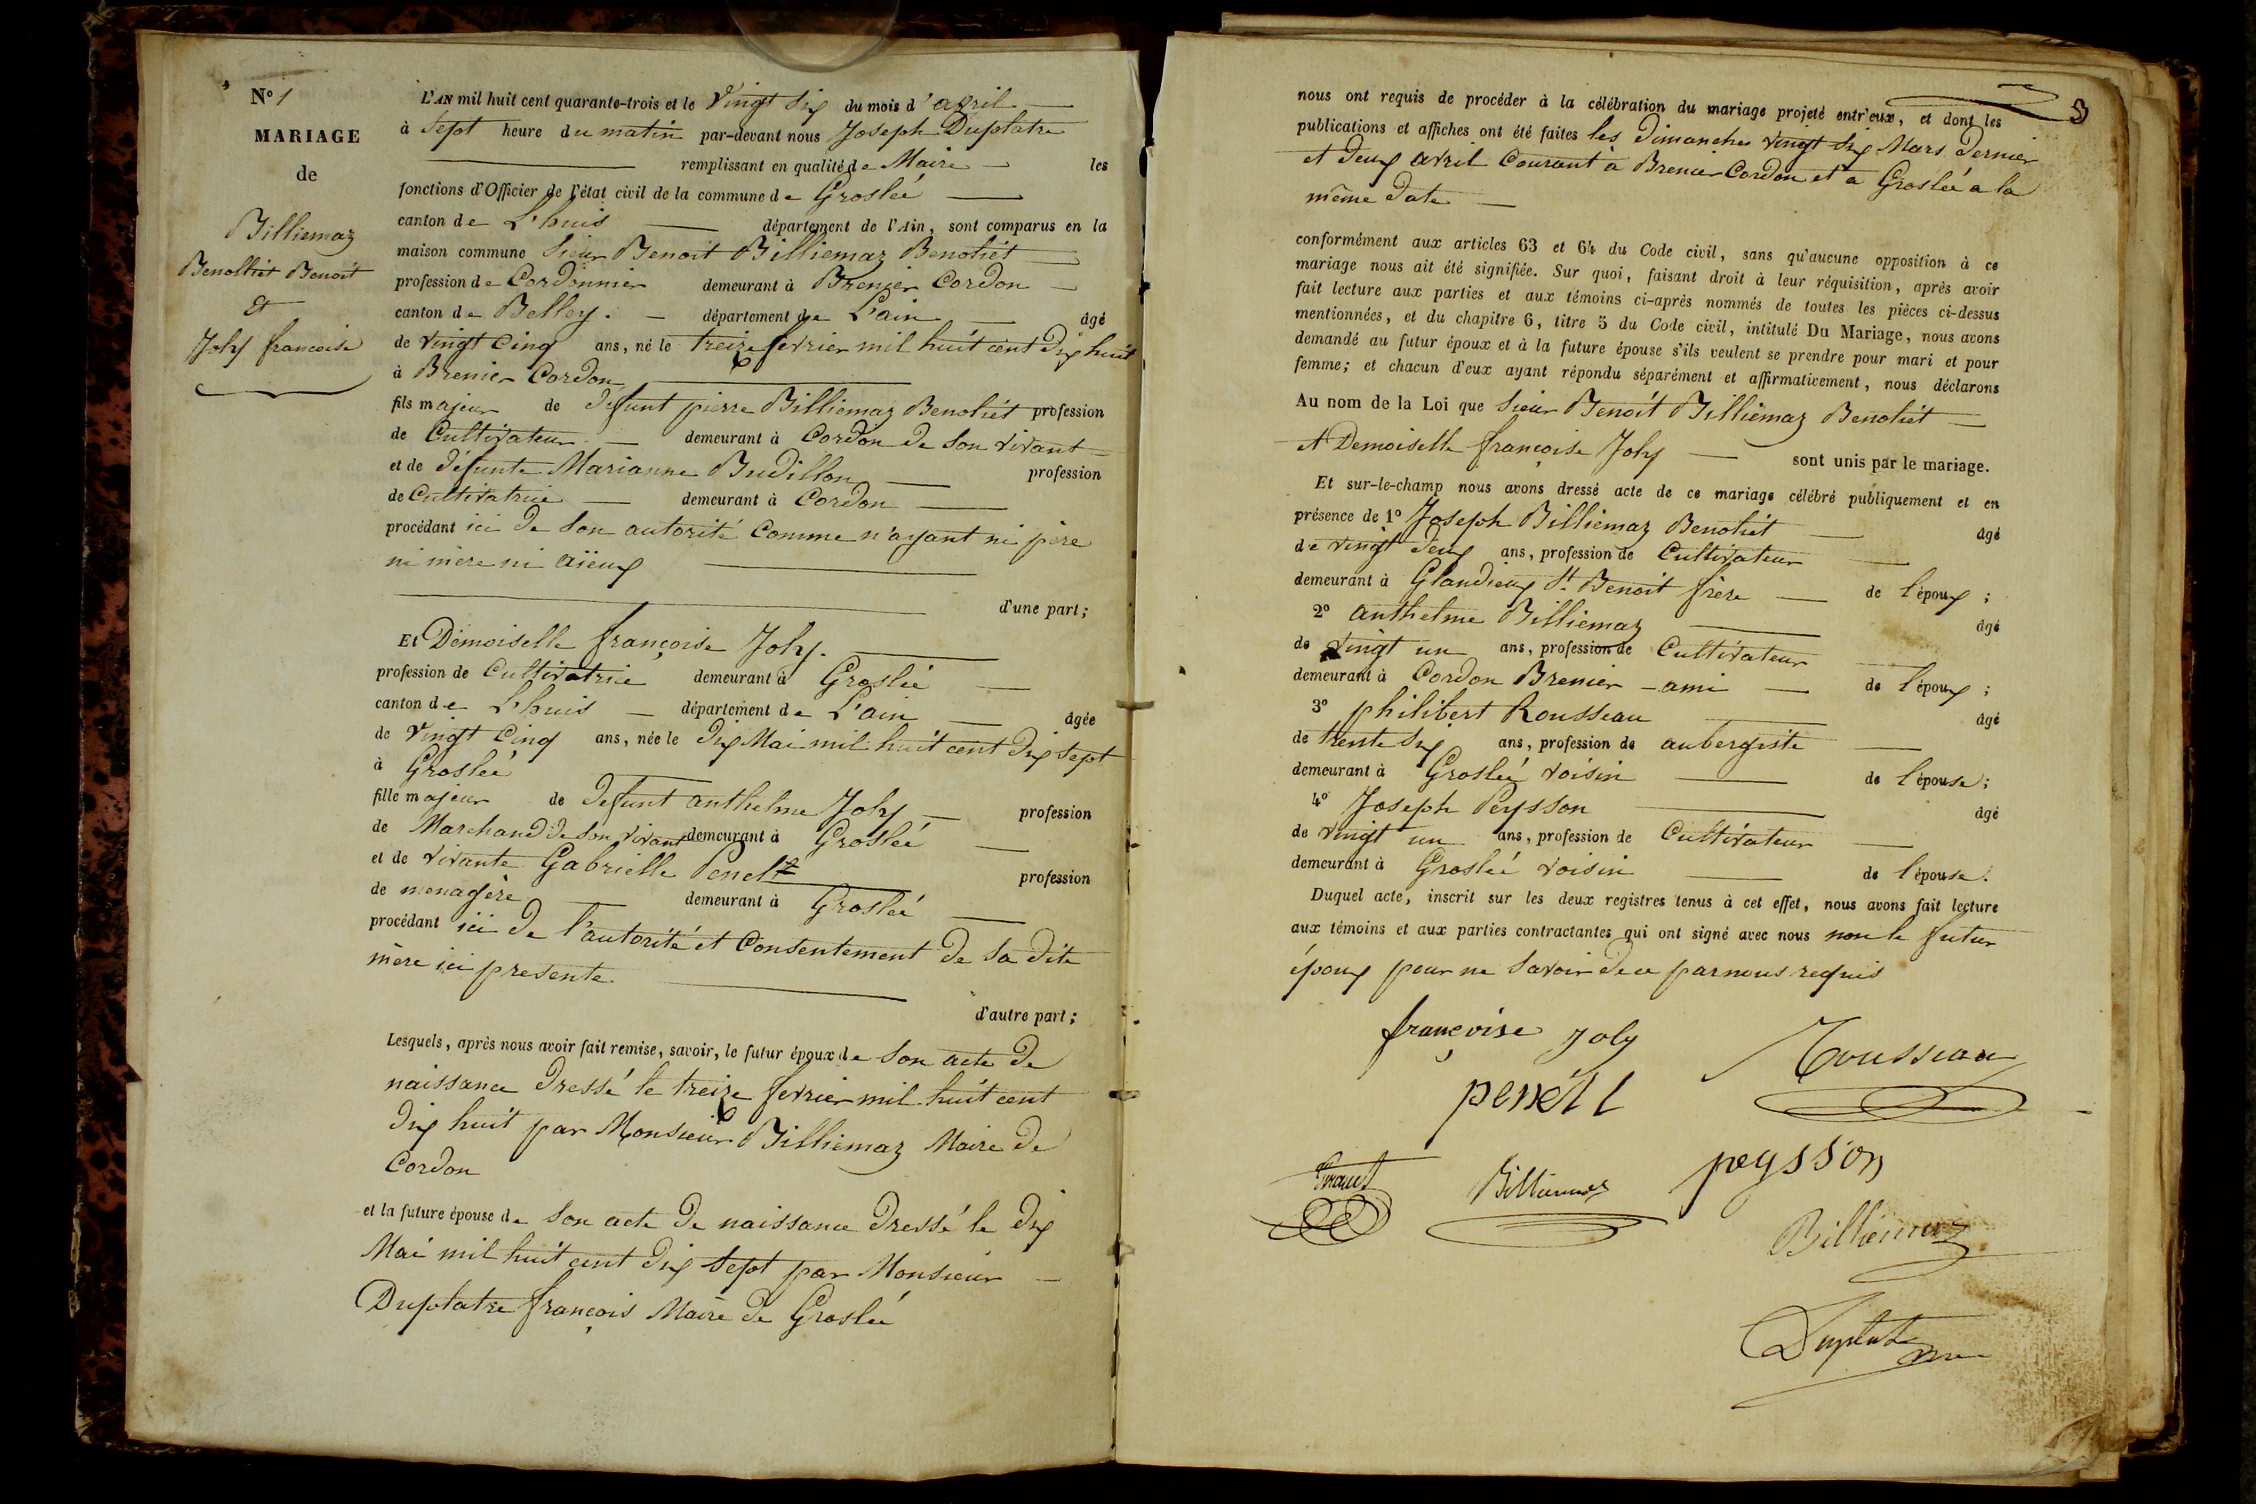 N° 1
MARIAGE
de
Billiemaz
Benolliet Benoit
&
Joly françoise
L'AN mil huit cent quarante-trois et le vingt six du mois d'avril
à sept heure du matin par-devant nous Joseph Duplatre
remplissant en qualité de Maire les
fonctions d'Officier de l'état civil de la commune de Groslée
canton de L'huis département de l'Ain, sont comparus en la
maison commune Sieur Benoit Billiemaz Benoliét
profession de Cordonnier demeurant à Brenier Cordon
canton de Belley. département de L'ain âgé
de vingt cinq ans, né le treize fevrier mil huit cent dix huit
à Brenier Cordon
fils majeur de défunt pierre Billiemaz Benoliét profession
de Cultivateur demeurant à Cordon de son vivant
et de défunte Marianne Budillon profession
de Cultivatrice demeurant à Cordon
procédant ici de son autorité comme n'ayant ni père
ni mère ni aïeux
d'une part;
Et Demoiselle françoise Joly.
profession de Cultivatrice demeurant à Groslée
canton de L'huis département de L'ain âgée
de vingt cinq ans, née le dix Mai mil huit cent dix sept
à Groslée
fille majeur de defunt anthelme Joly profession
de Marchand de son vivant demeurant à Groslée
et de vivante Gabrielle Penelt profession
de menagère demeurant à Groslée
procédant ici de l'autorité et Consentement de sa dite
mère ici presente.
d'autre part;
Lesquels, après nous avoir fait remise, savoir, le futur époux de son acte de
naissance dressé le treize fevrier mil huit cent
dix huit par Monsieur Billiemaz Maire de
Cordon
et la future épouse de son acte de naissance dressé le dix
Mai mil huit cent dix sept par Monsieur
Duplatre françois Maire de Groslée
3
nous ont requis de procéder à la célébration du mariage projeté entr'eux, et dont les
publications et affiches ont été faites les dimanches vingt six Mars dernier
et deux avril Courant à Brenier Cordon et a Groslée a la
même date
conformément aux articles 63 et 64 du Code civil, sans qu'aucune opposition à ce
mariage nous ait été signifiée. Sur quoi, faisant droit à leur réquisition, après avoir
fait lecture aux parties et aux témoins ci-après nommés de toutes les pièces ci-dessus
mentionnées, et du chapitre 6, titre 5 du Code civil, intitulé Du Mariage, nous avons
demandé au futur époux et à la future épouse s'ils veulent se prendre pour mari et pour
femme; et chacun d'eux ayant répondu séparément et affirmativement, nous déclarons
Au nom de la Loi que Sieur Benoit Billiemaz Benoliet
et Demoiselle françoise Joly sont unis par le mariage.
Et sur-le-champ nous avons dressé acte de ce mariage célébré publiquement et en
présence de 1° Joseph Billiemaz Benoliet âgé
de vingt deux ans, profession de Cultivateur
demeurant à Glandieux St. Benoit frère de l'époux;
2° anthelme Billiemaz âgé
de vingt un ans, profession de Cultivateur
demeurant à Cordon Brenier - ami de l'époux;
3° philibert Rousseau âgé
de trente six ans, profession de aubergiste
demeurant à Groslée voisin de l'épouse;
4° Joseph Peysson âgé
de vingt un ans, profession de Cultivateur
demeurant à Groslée voisin de l'épouse.
Duquel acte, inscrit sur les deux registres tenus à cet effet, nous avons fait lecture
aux témoins et aux parties contractantes qui ont signé avec nous non le futur
époux pour ne savoir de ce par nous requis
françoise joly
Rousseau
penétl
Billiemaz
peysson
Billiémaz
Duplatre